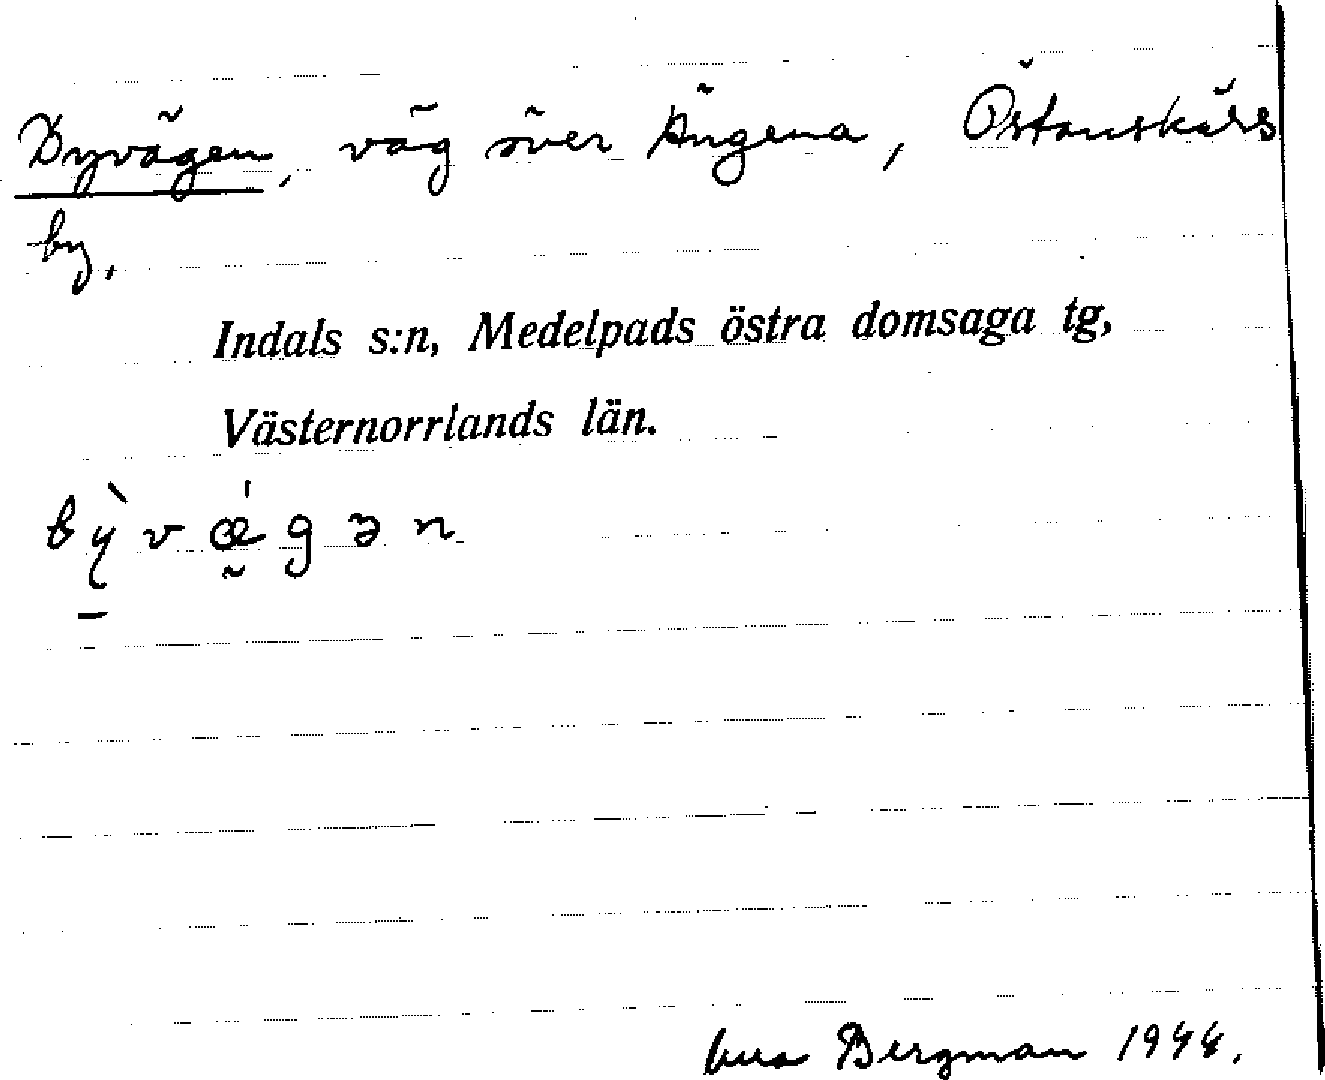 Byvägen, väg över Ängena, Östanskärs
by.
Indals s:n, Medelpads östra domsaga tg,
Västernorrlands län.
bỳ̠vǽ̰gən
Bergman 1944.